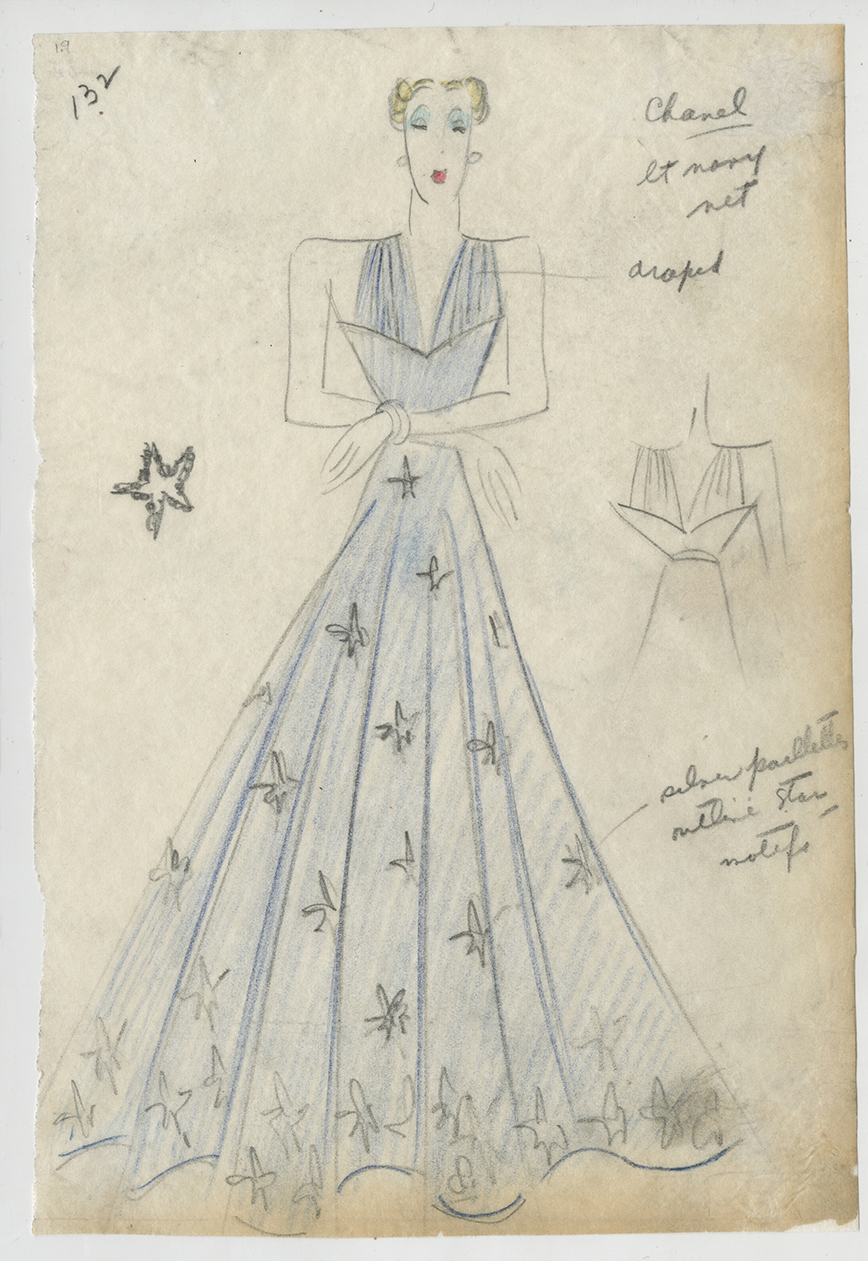 19
132
Chanel
lt navy
net
draped
silver paillettes
outline star
motifs